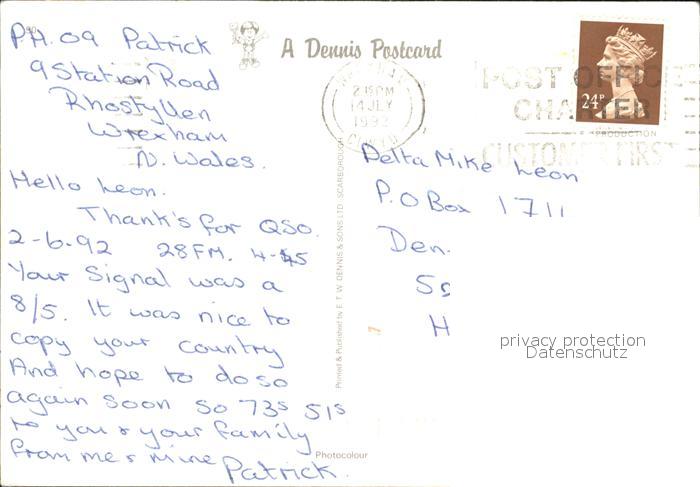 P.A. 09 Patrick
9 Station Road
Rhostyllen
Wrexham
N. Wales.
Hello Leon.
Thank's for QSO.
2-6-92 28FM. 4-45
Your Signal was a
8/5. It was nice to
copy your country
And hope to do so
again soon so 73s 51s
to you & your family
from me & mine Patrick.
A Dennis Postcard
2 15PM
14 JLY
1992
POST OFFICE
CHARTER
CUSTOMER FIRST
24P
Delta Mike Leon
P.O Box 1711
Den.
Ss
H
privacy protection
Datenschutz
Printed & Published by E. T. W. DENNIS & SONS LTD. SCARBOROUGH
Photocolour